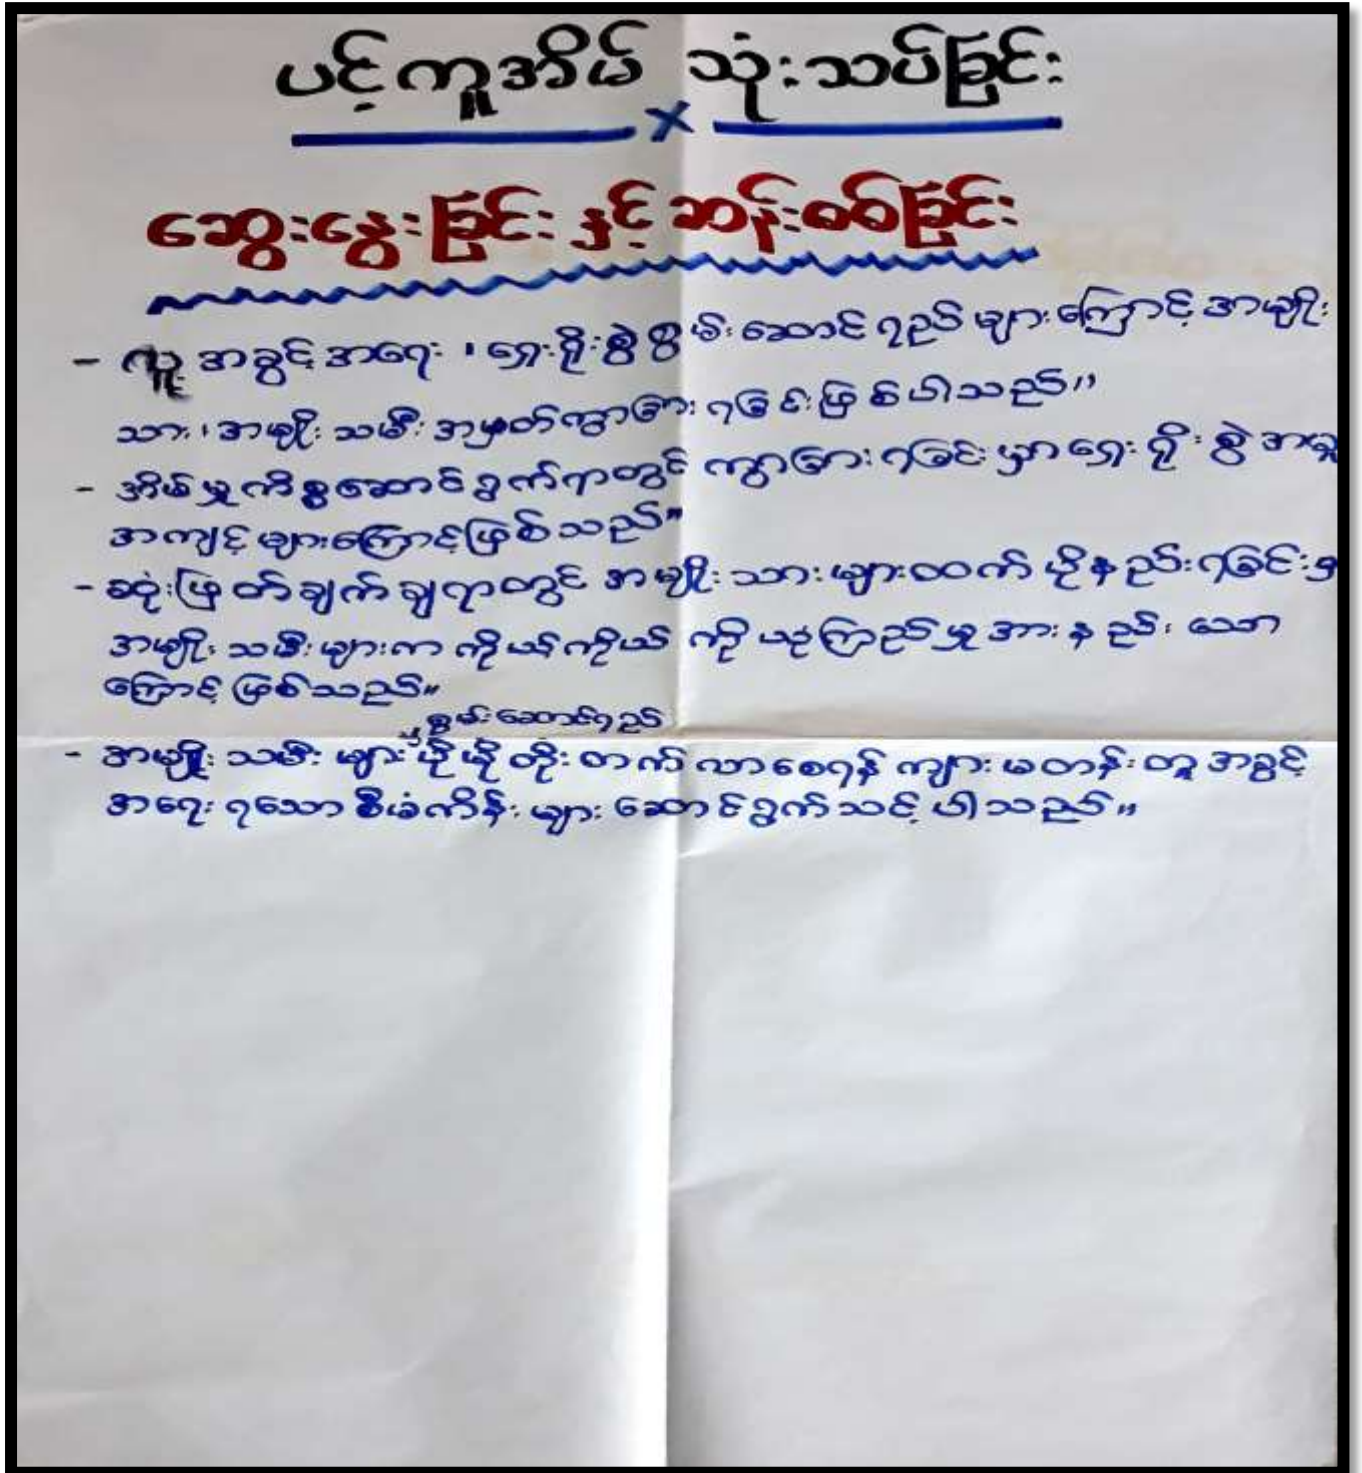 ပင့်ကူအိမ် သုံးသပ်ခြင်း
ဆွေးနွေးခြင်း နှင့် ဆန်းစစ်ခြင်း
- လူ့ အခွင့်အရေး ၊ ရှေးရိုးစွဲ စွမ်းဆောင်ရည်များကြောင့် အမျိုး
သား၊ အမျိုးသမီး အမှတ်ကွာခြားရခြင်းဖြစ်ပါသည်။
- အိမ်မှုကိစ္စဆောင်ရွက်ရာတွင် ကွာခြားရခြင်းမှာ ရှေးရိုးစွဲ အလေ့
အကျင့်များကြောင့်ဖြစ်သည်။
- ဆုံးဖြတ်ချက်ချရာတွင် အမျိုးသားများထက် ပိုနည်းရခြင်းမှာ
အမျိုးသမီးများက ကိုယ်ကိုယ်ကို ယုံကြည်မှုအားနည်းသော
ကြောင့်ဖြစ်သည်။
စွမ်းဆောင်ရည်
- အမျိုးသမီးများ ပိုမိုတိုးတက်လာစေရန် ကျားမတန်းတူအခွင့်
အရေးရသော စီမံကိန်းများ ဆောင်ရွက်သင့်ပါသည်။